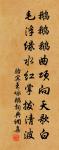 鵝鵝鵝曲項向天歌白
毛浮綠水紅掌撥清波
駱賓王詠鵝